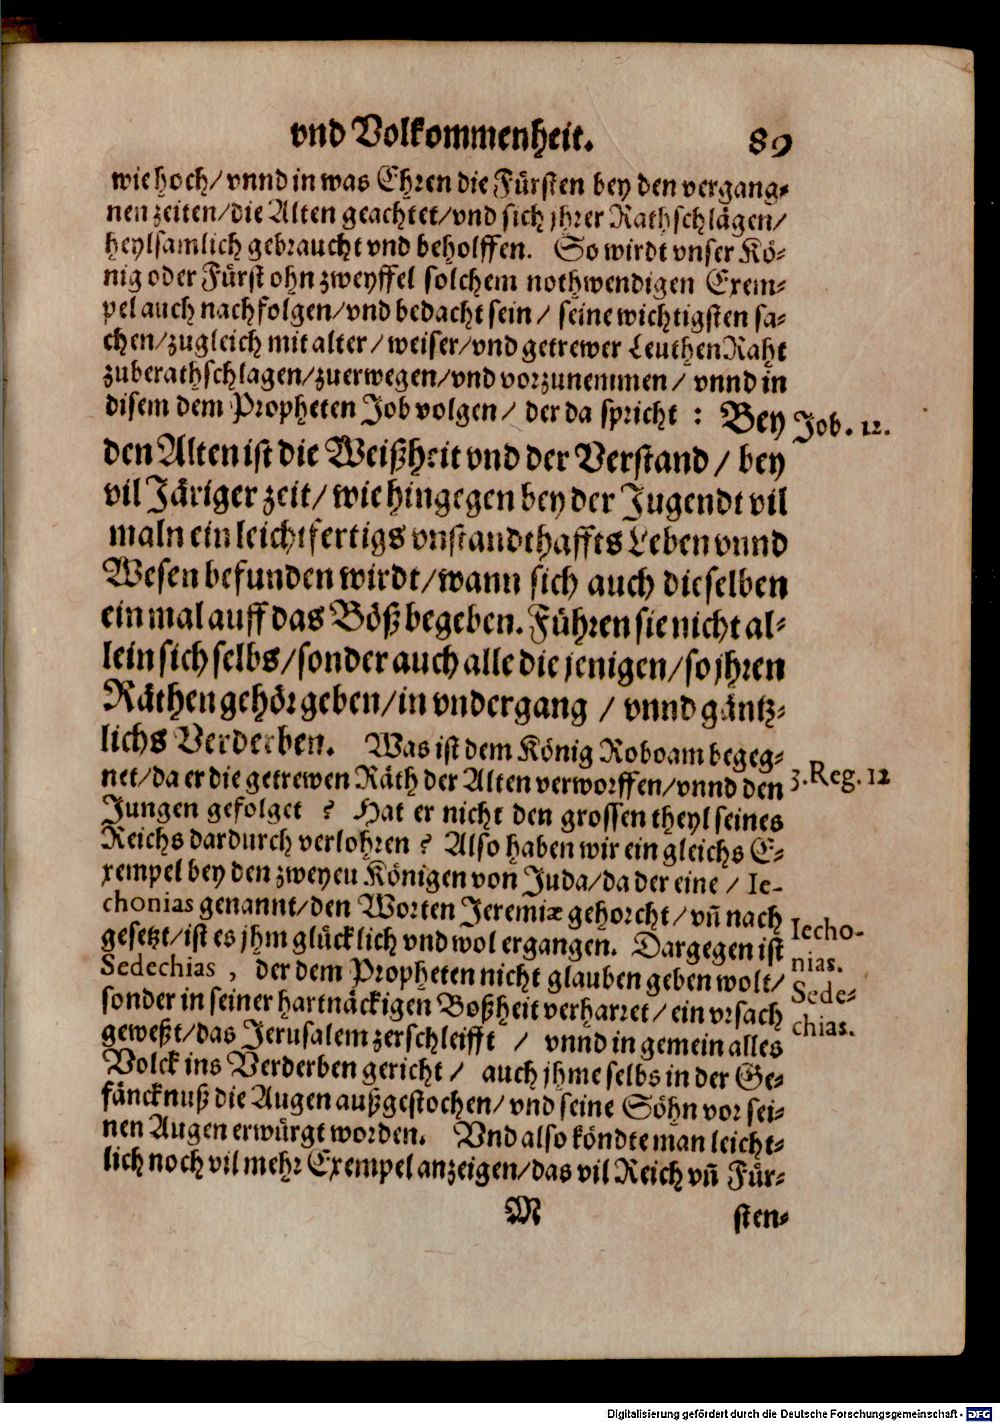 vnd Volkommenheit. 89
wie hoch/ vnnd in was Ehren die Fürsten bey den vergang-
nen zeiten/die Alten geachtet/vnd sich jhrer Rathschlägen/
heylsamlich gebraucht vnd beholffen. So wirdt vnser Kö-
nig oder Fürst ohn zweyffel solchem nothwendigen Exem-
pel auch nachfolgen/vnd bedacht sein/ seine wichtigsten sa-
chen/zugleich mit alter/ weiser/vnd getrewer Leuthen Raht
zuberathschlagen/zuerwegen/vnd vorzunemmen/ vnnd in
disem dem Propheten Job volgen/ der da spricht : Bey
Job. 12.
den Alten ist die Weißheit vnd der Verstand/ bey
vil Järiger zeit/ wie hingegen bey der Jugendt vil
maln ein leichtfertigs vnstandthaffts Leben vnnd
Wesen befunden wirdt/wann sich auch dieselben
ein mal auff das Böß begeben. Führen sie nicht al-
lein sich selbs/sonder auch alle die jenigen/so jhren
Räthen gehör geben/in vndergang / vnnd gäntz-
lichs Verderben. Was ist dem König Roboam begeg-
net/da er die getrewen Räth der Alten verworffen/vnnd den
3. Reg. 12
Jungen gefolget ? Hat er nicht den grossen theyl seines
Reichs dardurch verlohren ? Also haben wir ein gleichs E-
xempel bey den zweyen Königen von Juda/da der eine / Ie-
chonias genannt/den Worten Jeremiæ gehorcht/ vñ nach
gesetzt/ist es jhm glücklich vnd wol ergangen. Dargegen ist
Iecho-
nias.
Sedechias , der dem Propheten nicht glauben geben wolt/
sonder in seiner hartnäckigen Boßheit verharret/ ein vrsach
Sede-
chias.
geweßt/das Jerusalem zerschleifft / vnnd in gemein alles
Volck ins Verderben gericht/ auch jhme selbs in der Ge-
fäncknuß die Augen außgestochen/ vnd seine Söhn vor sei-
nen Augen erwürgt worden. Vnd also köndte man leicht-
lich noch vil mehr Exempel anzeigen/das vil Reich vñ Für-
M sten-
Digitalisierung gefördert durch die Deutsche Forschungsgemeinschaft - DFG